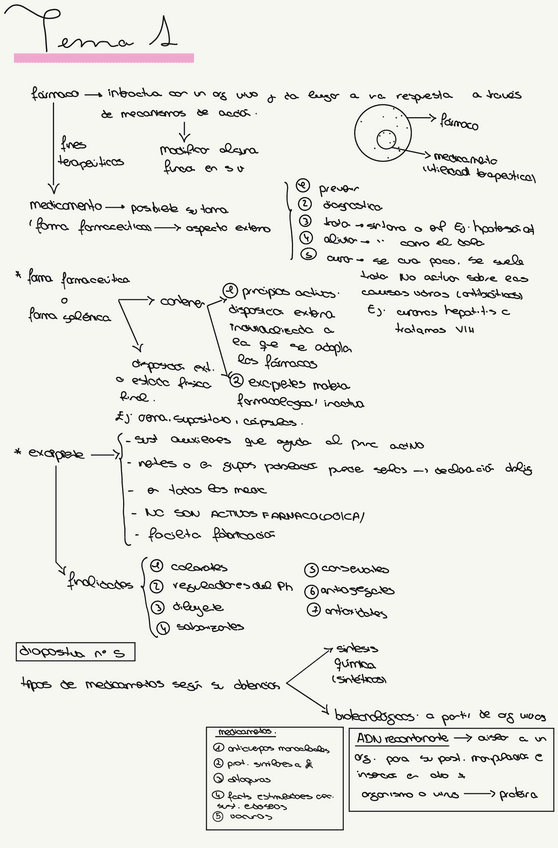 Tema 1
fármaco → interactúa con un org vivo y da lugar a una respuesta a través
de mecanismos de acción.
fines
terapéuticos
modifica alguna
función en s.v
fármaco
medicamento
(utilidad terapéutica)
medicamento → posibilita su toma
(forma farmacéutica → aspecto externo
① prevenir
② diagnóstico
③ tratar → síntoma o enf Ej. hipotensión
④ aliviar → " como el dolor
⑤ curar → se cura poco. Se suele
tratar. No actúan sobre las
causas
Ej. curamos hepatitis c
tratamos VIH
* forma farmacéutica
o
forma galénica
contener
① principios activos.
disposición externa
individualizada a
la que se adapta
los fármacos
② excipientes materia
farmacológica/ inactiva
disposición ext.
o estado físico
final.
Ej: crema, supositorio, cápsulas.
* excipiente
- sust auxiliares que ayuda al princ activo
- inertes o en grupos puede serlos → declaración oblig
- en todos los medic
- NO SON ACTIVOS FARMACOLÓGICA/
- facilita fabricación
finalidades
① colorantes
② reguladores del Ph
③ diluyente
④ saborizantes
⑤ conservantes
⑥ antiagregantes
⑦ antioxidantes
diapositiva nº 5
tipos de medicamentos según su obtención
síntesis
química
(sintéticos)
biotecnológicos: a partir de org vivos
medicamentos.
① anticuerpos monoclonales
② prot. similares a
③
④ facts estimuladores
sust.
⑤ vacunas
ADN recombinante → aislar a un
org. para su post. manipulación e
inserción en otro
organismo o virus → proteína